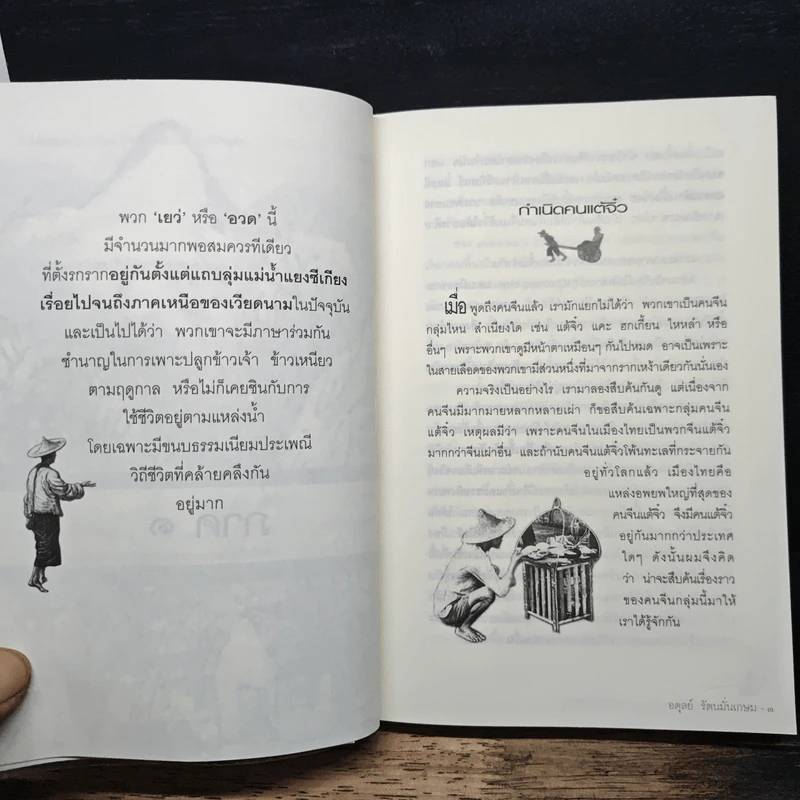 พวก ‘เยว่’ หรือ ‘อวด’ นี้
มีจำนวนมากพอสมควรทีเดียว
ที่ตั้งรกรากอยู่กันตั้งแต่แถบลุ่มแม่น้ำแยงซีเกียง
เรื่อยไปจนถึงภาคเหนือของเวียดนามในปัจจุบัน
และเป็นไปได้ว่า พวกเขาจะมีภาษาร่วมกัน
ชำนาญในการเพาะปลูกข้าวเจ้า ข้าวเหนียว
ตามฤดูกาล หรือไม่ก็เคยชินกับการ
ใช้ชีวิตอยู่ตามแหล่งน้ำ
โดยเฉพาะมีขนบธรรมเนียมประเพณี
วิถีชีวิตที่คล้ายคลึงกัน
อยู่มาก
ภาค ๑
กำเนิดคนแต้จิ๋ว
เมื่อ พูดถึงคนจีนแล้ว เรามักแยกไม่ได้ว่า พวกเขาเป็นคนจีน
กลุ่มไหน สำเนียงใด เช่น แต้จิ๋ว แคะ ฮกเกี้ยน ไหหลำ หรือ
อื่นๆ เพราะพวกเขาดูมีหน้าตาเหมือนๆ กันไปหมด อาจเป็นเพราะ
ในสายเลือดของพวกเขามีส่วนหนึ่งที่มาจากรากเหง้าเดียวกันนั่นเอง
ความจริงเป็นอย่างไร เรามาลองสืบค้นกันดู แต่เนื่องจาก
คนจีนมีมากมายหลากหลายเผ่า ก็ขอสืบค้นเฉพาะกลุ่มคนจีน
แต้จิ๋ว เหตุผลมีว่า เพราะคนจีนในเมืองไทยเป็นพวกจีนแต้จิ๋ว
มากกว่าจีนเผ่าอื่น และถ้านับคนจีนแต้จิ๋วโพ้นทะเลที่กระจายกัน
อยู่ทั่วโลกแล้ว เมืองไทยคือ
แหล่งอพยพใหญ่ที่สุดของ
คนจีนแต้จิ๋ว จึงมีคนแต้จิ๋ว
อยู่กันมากกว่าประเทศ
ใดๆ ดังนั้นผมจึงคิด
ว่า น่าจะสืบค้นเรื่องราว
ของคนจีนกลุ่มนี้มาให้
เราได้รู้จักกัน
อดุลย์ รัตนมั่นเกษม - ๓